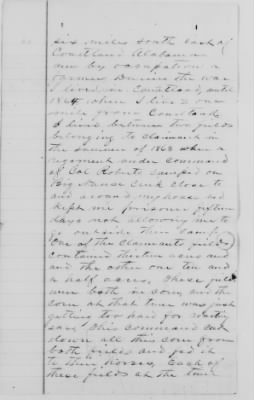 six miles south East of
Courtland Alabama
am by occupation a
farmer During the war
I lived in Courtland, until
1864 when I live one
mile from Courtland
I live between two fields
belonging to claimant in
the summer of 1863 when a
regiment under command
of Col Roberts camped on
Big Nance creek close to
and around my house and
kept me prisoner fifteen
days not allowing me to
go outside their camp.
One of the claimants fields
contained thirteen acres and
and the other one ten and
a half acres. These fields
were both in corn, and the
corn at that time was just
getting too hard for roasting
ears. This command cut
down all this corn from
both fields and fed it
to their horses, Each of
these fields at the time